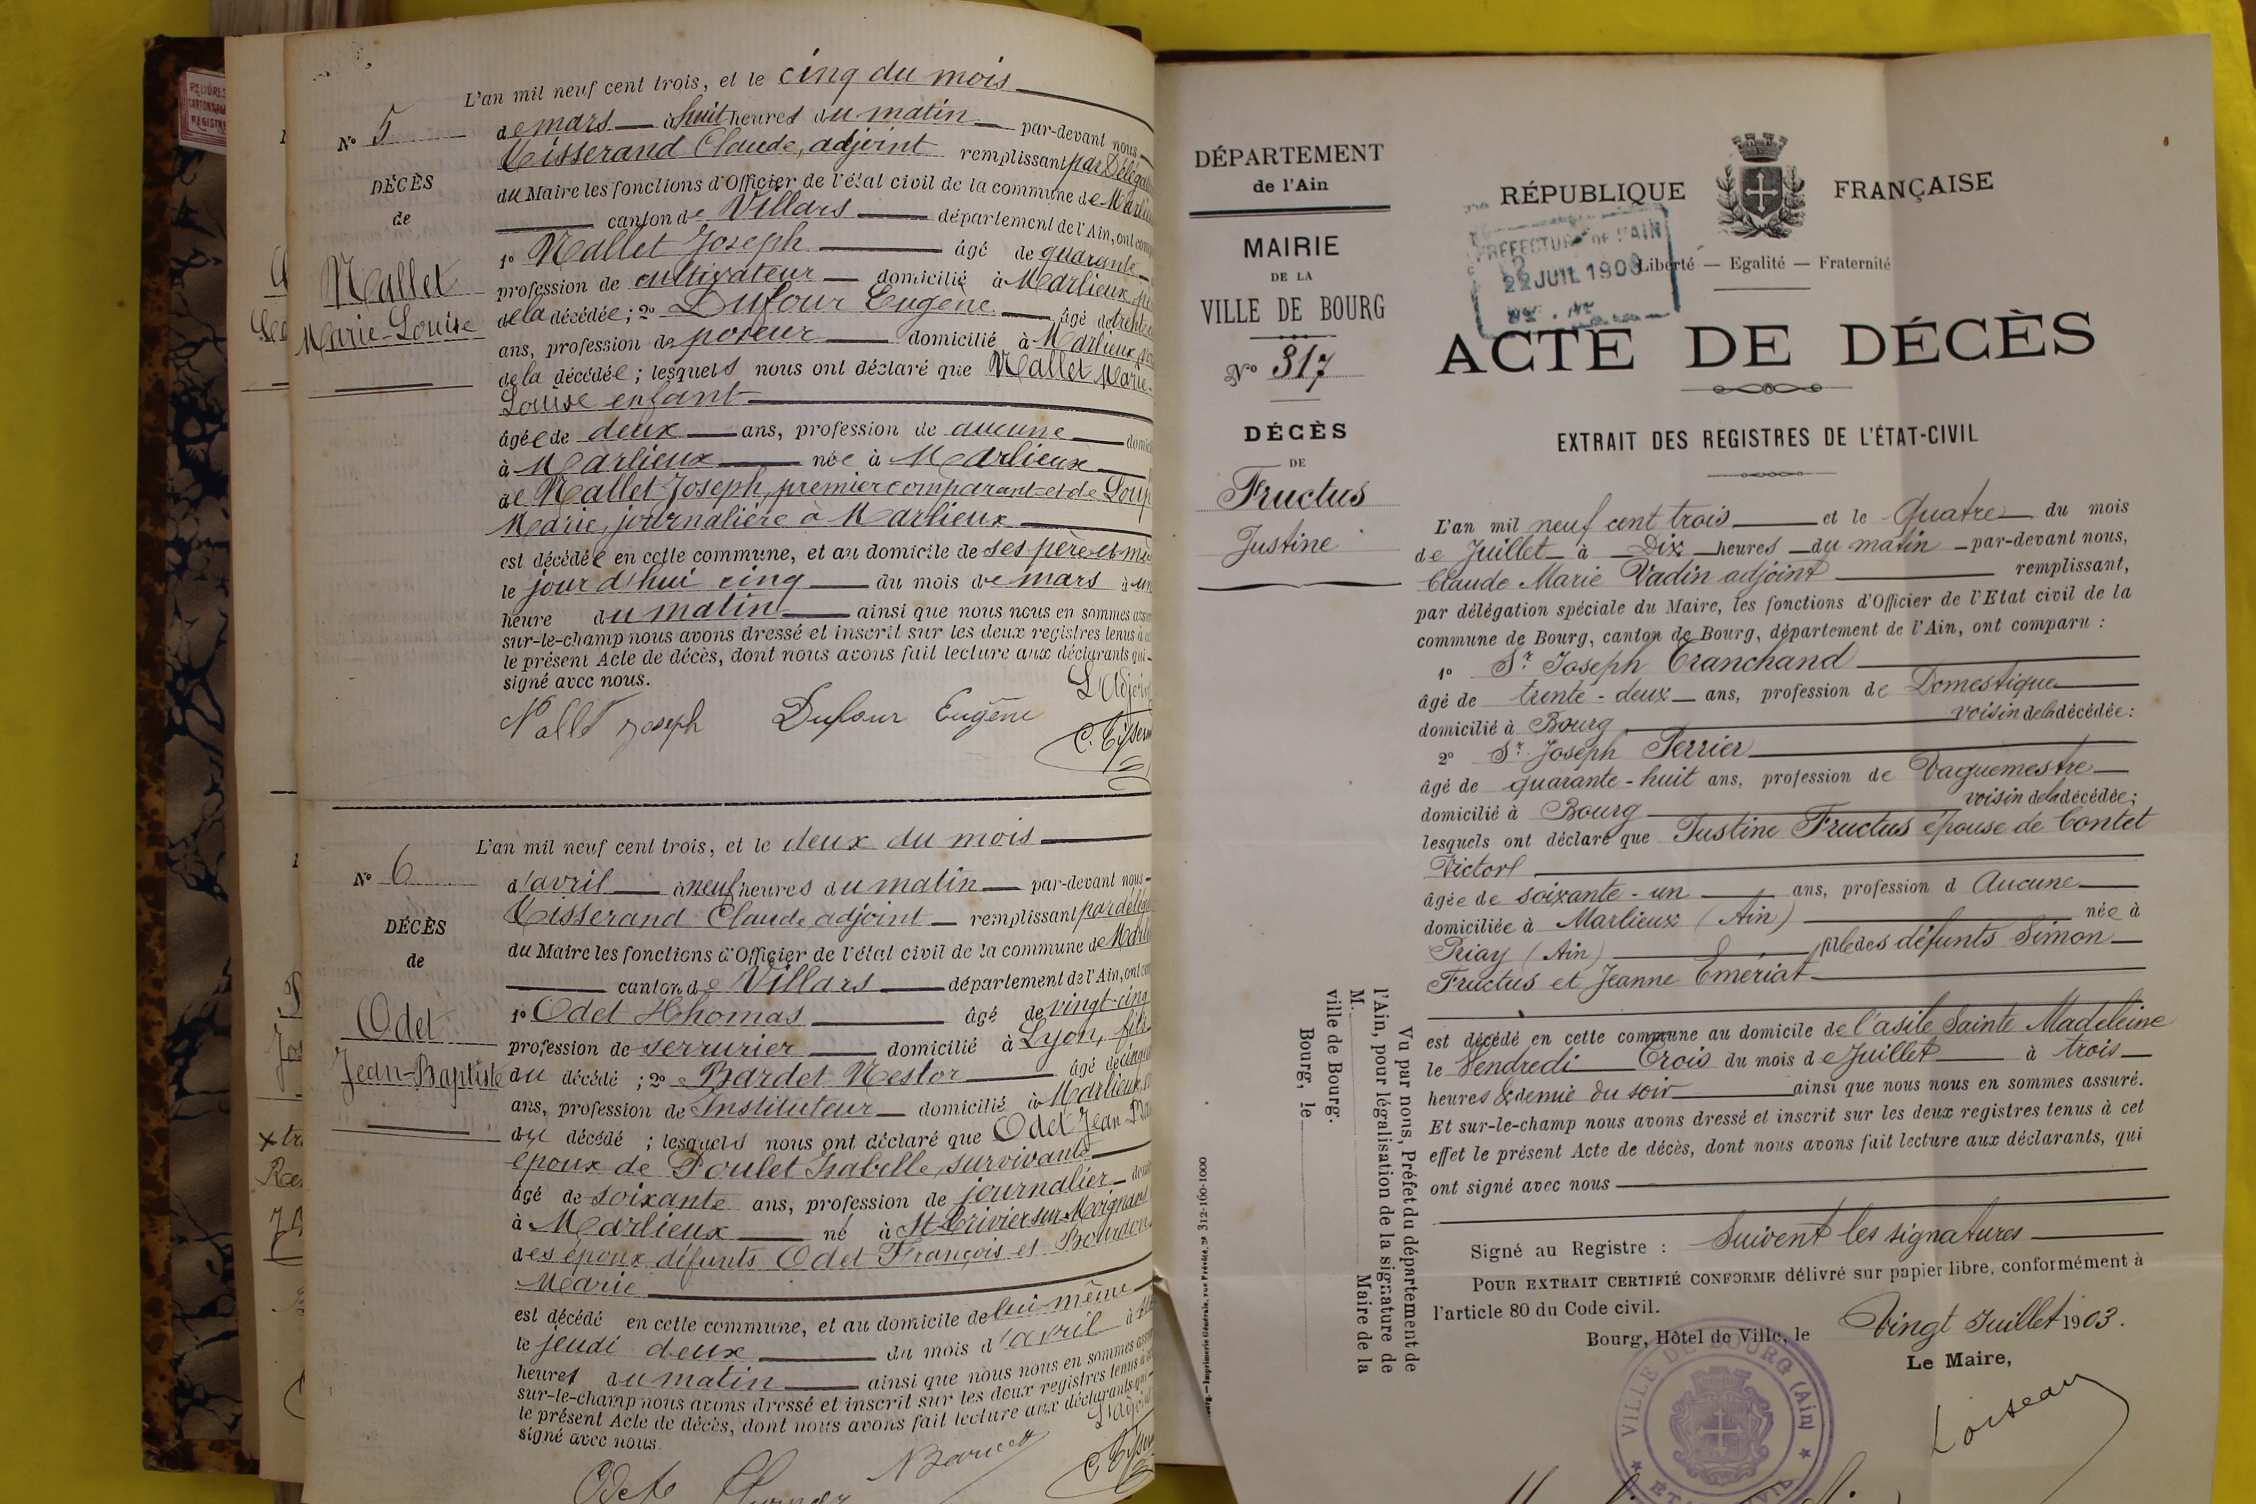 L'an mil neuf cent trois, et le cinq du mois
No 5
de mars à huit heures du matin par-devant nous
Tisserand Claude, adjoint remplissant par Délég
DÉCÈS
de
Mallet
Marie-Louise
du Maire les fonctions d'Officier de l'état civil de la commune de Marlie
canton de Villars département de l'Ain, ont comp
1o Mallet Joseph âgé de quarante
profession de cultivateur domicilié à Marlieux,
de la décédée; 2o Dufour Eugène âgé de trente
ans, profession de poseur domicilié à Marlieux,
de la décédée; lesquels nous ont déclaré que Mallet Marie-
Louise enfant
âgée de deux ans, profession de aucune domici
à Marlieux née à Marlieux
de Mallet Joseph, premier comparant et de Loup
Marie, journalière à Marlieux
est décédée en cette commune, et au domicile de ses père et mè
le jour d'hui cinq du mois de mars à un
heure du matin ainsi que nous nous en sommes assu
sur-le-champ nous avons dressé et inscrit sur les deux registres tenus à c
le présent Acte de décès, dont nous avons fait lecture aux déclarants qui
signé avec nous.
L'Adjoin
Mallet Joseph Dufour Eugène
C. Tisseran
L'an mil neuf cent trois, et le deux du mois
No 6
d'avril à neuf heures du matin par-devant nous
Tisserand Claude, adjoint remplissant par délég
DÉCÈS
de
Odet
Jean-Baptiste
du Maire les fonctions d'Officier de l'état civil de la commune de Marli
canton de Villars département de l'Ain, ont com
1o Odet Thomas âgé de vingt-cinq
profession de serrurier domicilié à Lyon, fils
du décédé; 2o Bardet Nestor âgé de cinqua
ans, profession de Instituteur domicilié à Marlieux,
du décédé; lesquels nous ont déclaré que Odet Jean-Ba
époux de Poulet Isabelle, survivante
âgé de soixante ans, profession de journalier domi
à Marlieux né à St Trivier sur Moignans
des époux défunts Odet François et Bourdon
Marie
est décédé en cette commune, et au domicile de lui même
le jeudi deux du mois d'avril à
heures du matin ainsi que nous nous en sommes assu
sur-le-champ nous avons dressé et inscrit sur les deux registres tenus à c
le présent Acte de décès, dont nous avons fait lecture aux déclarants qui
signé avec nous.
L'adjoi
Odet Thomas N Bardet
C. Tisser
DÉPARTEMENT
de l'Ain
MAIRIE
DE LA
VILLE DE BOURG
No 317
DÉCÈS
DE
Fructus
Justine
RÉPUBLIQUE FRANÇAISE
PREFECTURE DE L'AIN
22 JUIL 1903
Liberté — Egalité — Fraternité
ACTE DE DÉCÈS
EXTRAIT DES REGISTRES DE L'ÉTAT-CIVIL
L'an mil neuf cent trois et le Quatre du mois
de Juillet à Dix heures du matin par-devant nous,
Claude Marie Vadin adjoint remplissant,
par délégation spéciale du Maire, les fonctions d'Officier de l'Etat civil de la
commune de Bourg, canton de Bourg, département de l'Ain, ont comparu :
1o Sr Joseph Tranchand
âgé de trente-deux ans, profession de Domestique
domicilié à Bourg voisin de la décédée:
2o Sr Joseph Perrier
âgé de quarante-huit ans, profession de Vaguemestre
domicilié à Bourg voisin de la décédée;
lesquels ont déclaré que Justine Fructus épouse de Contet
Victor
âgée de soixante-un ans, profession d Aucune
domiciliée à Marlieux (Ain) née à
Priay (Ain) fille des défunts Simon
Fructus et Jeanne Emériat
est décédé en cette commune au domicile de l'asile Sainte Madeleine
le Vendredi Trois du mois de Juillet à trois
heures & demie du soir ainsi que nous nous en sommes assuré.
Et sur-le-champ nous avons dressé et inscrit sur les deux registres tenus à cet
effet le présent Acte de décès, dont nous avons fait lecture aux déclarants, qui
ont signé avec nous
Signé au Registre : Suivent les signatures
POUR EXTRAIT CERTIFIÉ CONFORME délivré sur papier libre, conformément à
l'article 80 du Code civil.
Bourg, Hôtel de Ville, le Vingt Juillet 1903.
Le Maire,
Loiseau
VILLE DE BOURG (Ain)
Vu par nous, Préfet du département de
l'Ain, pour légalisation de la signature de
M. Maire de la
ville de Bourg.
Bourg, le
Imprimerie Générale, 312-100-1000